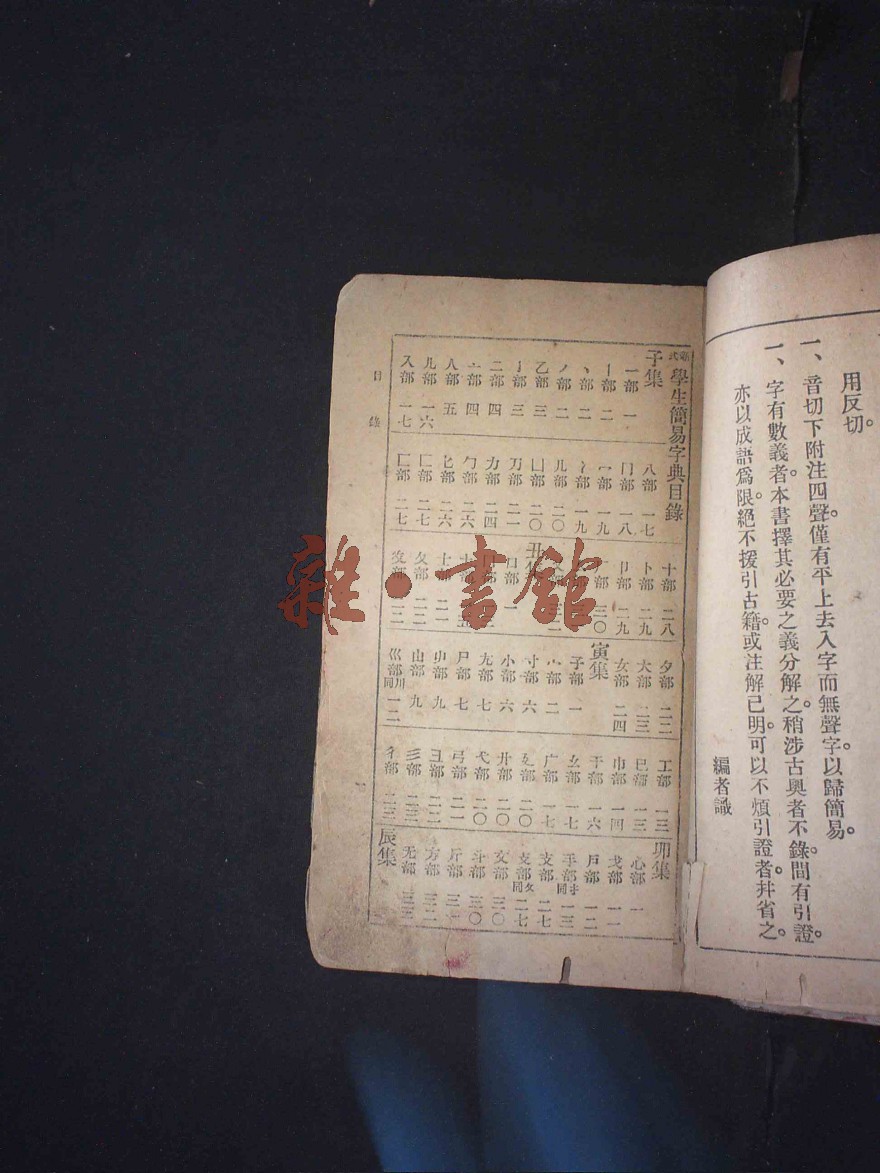 用反切。
一、音切下附注四聲。僅有平上去入字而無聲字。以歸簡易。
一、字有數義者。本書擇其必要之義分解之。稍涉古奧者不錄。間有引證。
亦以成語爲限。絕不援引古籍。或注解已明。可以不煩引證者。幷省之。
編者識
新式學生簡易字典目錄
子集
一部 一
丨部 二
丶部 二
丿部 二
乙部 三
亅部 三
二部 四
亠部 四
人部 五
儿部 一六
入部 一七
八部 一七
冂部 一八
冖部 一九
冫部 一九
几部 二〇
凵部 二〇
刀部 二一
力部 二四
勹部 二六
匕部 二六
匚部 二七
匸部 二七
十部 二八
卜部 二九
卩部 二九
部 三〇
丑集
口部 一
土部
士部 二一
夂部 二二
夊部 二二
夕部 二二
大部 二三
女部 二四
寅集
子部 一
宀部 二
寸部 六
小部 六
尢部 七
尸部 七
屮部 九
山部 九
巛部川同 一二
工部 一三
己部 一三
巾部 一四
干部 一六
幺部 一七
广部 一七
廴部 二〇
廾部 二〇
弋部 二〇
弓部 二一
彐部 二二
彡部 二三
彳部 二三
卯集
心部 一
戈部 一一
戶部 一二
手部扌同 一三
支部 二七
攴部攵同 二七
文部 三〇
斗部 三〇
斤部 三一
方部 三二
无部 三三
辰集
目錄
雜·書館